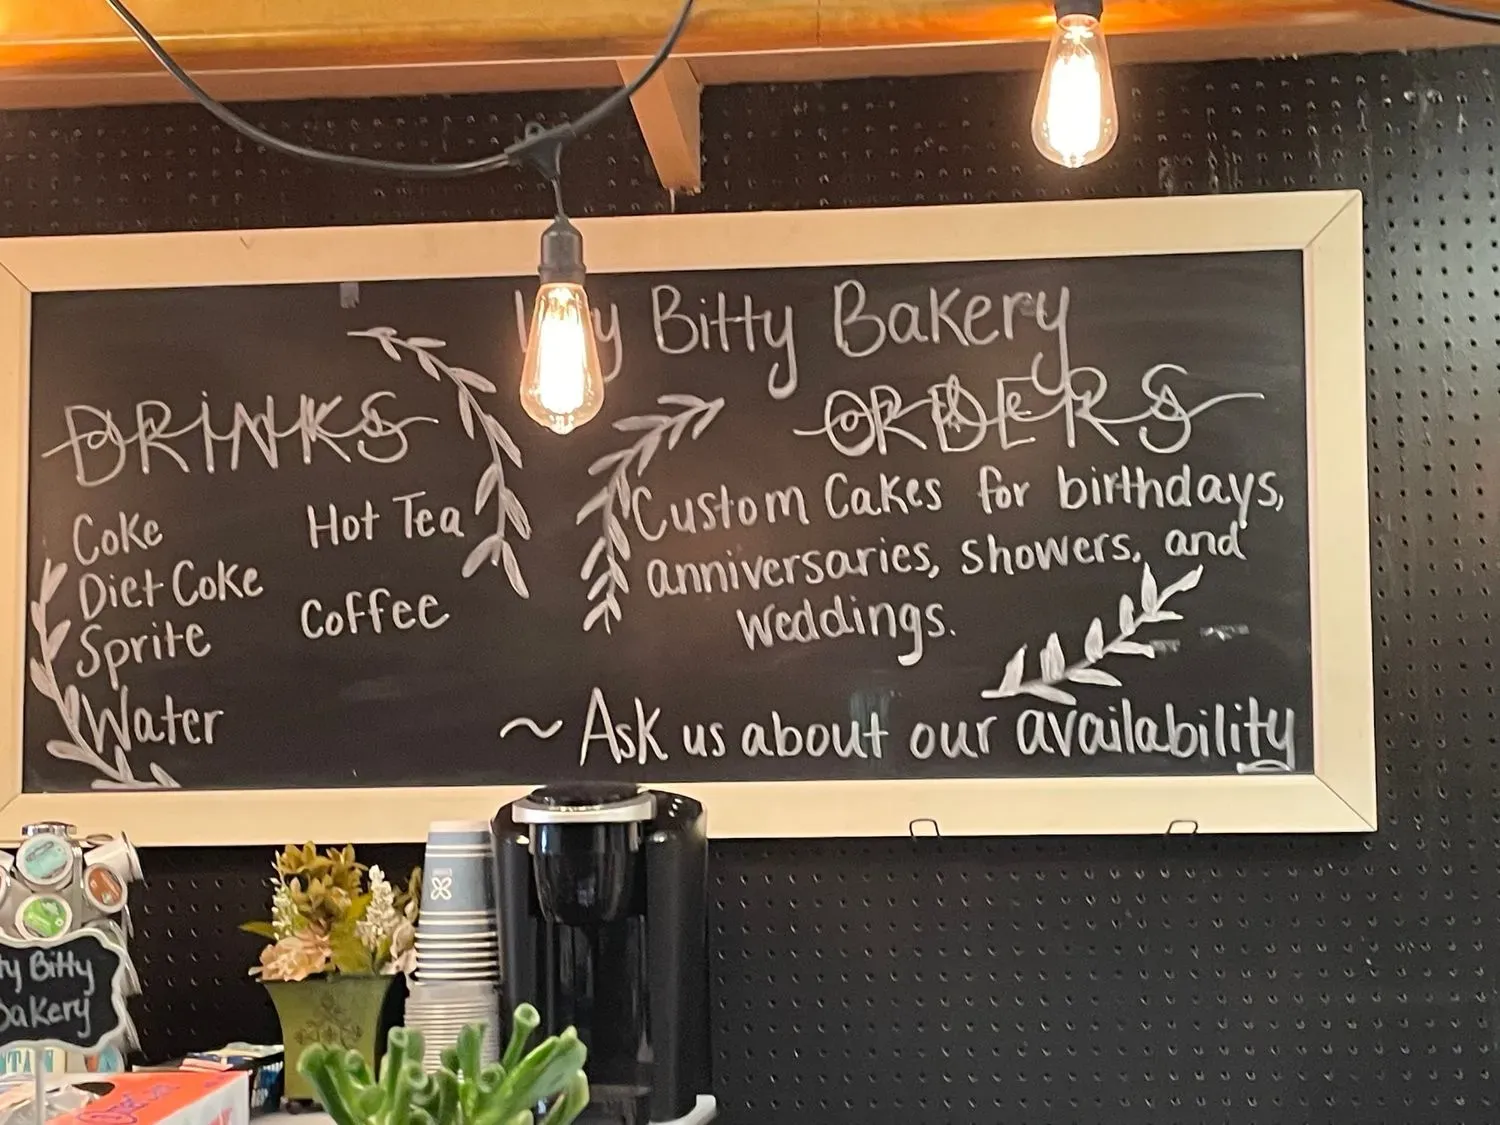 Bitty Bakery
DRINKS
Coke
Diet Coke
Sprite
Water
Hot Tea
Coffee
ORDERS
Custom Cakes for birthdays,
anniversaries, showers, and
weddings.
~ Ask us about our availability
ty Bitty
Bakery